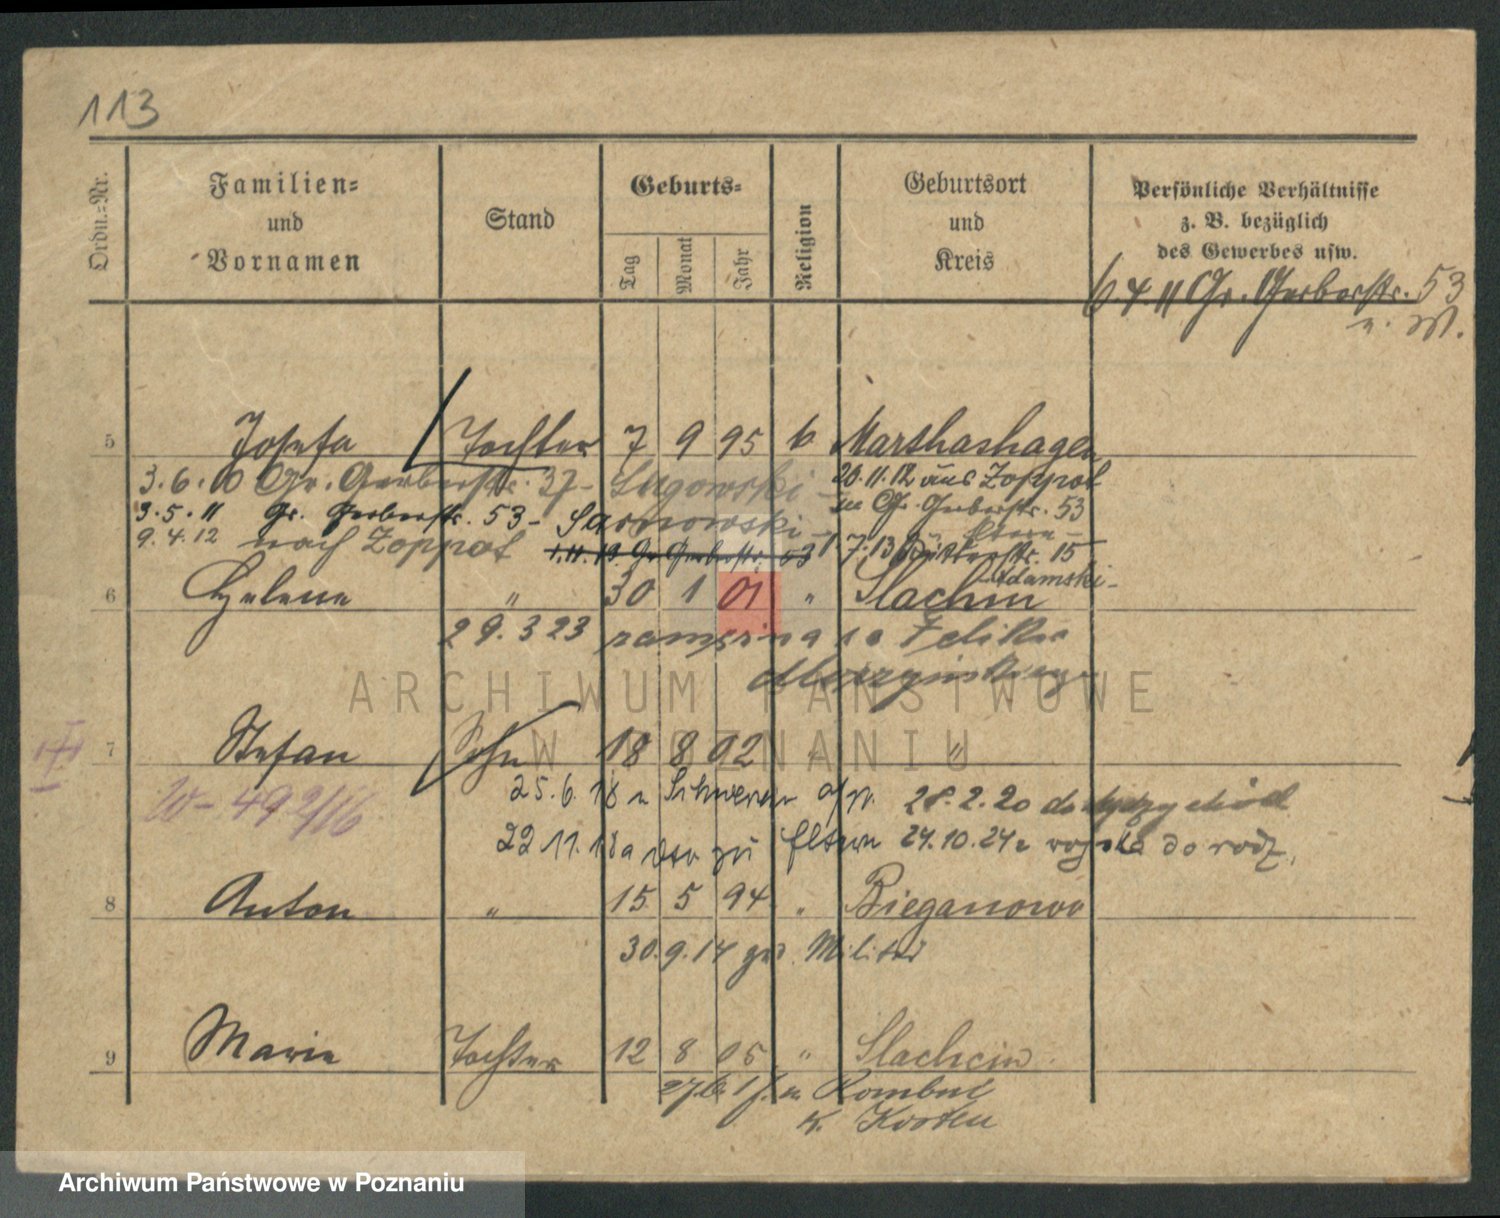 113
Ordn.-Nr.
Familien-
und
Vornamen
Stand
Geburts-
Tag
Monat
Jahr
Religion
Geburtsort
und
Kreis
Persönliche Verhältnisse
z. B. bezüglich
des Gewerbes usw.
6.4.11 Gr. Gerberstr. 53
5 Josefa Tochter 7 9 95 Marshashagen
3.6.10 Gr. Gerberstr. 37 - Lugowski - 20.11.12 aus Zoppot
Gr. Gerberstr. 53
3.5.11 Gr. Gerberstr. 53 - Sarnowski -
9.4.12 nach Zoppot 1.11.13 Gr. Gerberstr. 53 1.7.13 Büttelstr. 15
Adamski -
6 Helene " 30 1 01 " Slachin
29.3.23 za Feliksa
7 Stefan Sohn 18 8 02 " "
W - 492/16
25.6.18 n Schwersenz 28.2.20
22 11. 18 zu Eltern 24.10.24 z wojska do rodz.
8 Anton " 15 5 94 " Bieganowo
30.9.14 Militär
9 Marie Tochter 12 8 05 " Slachcin
n Rombin
K. Kosten
ARCHIWUM PAŃSTWOWE
W POZNANIU
Archiwum Państwowe w Poznaniu